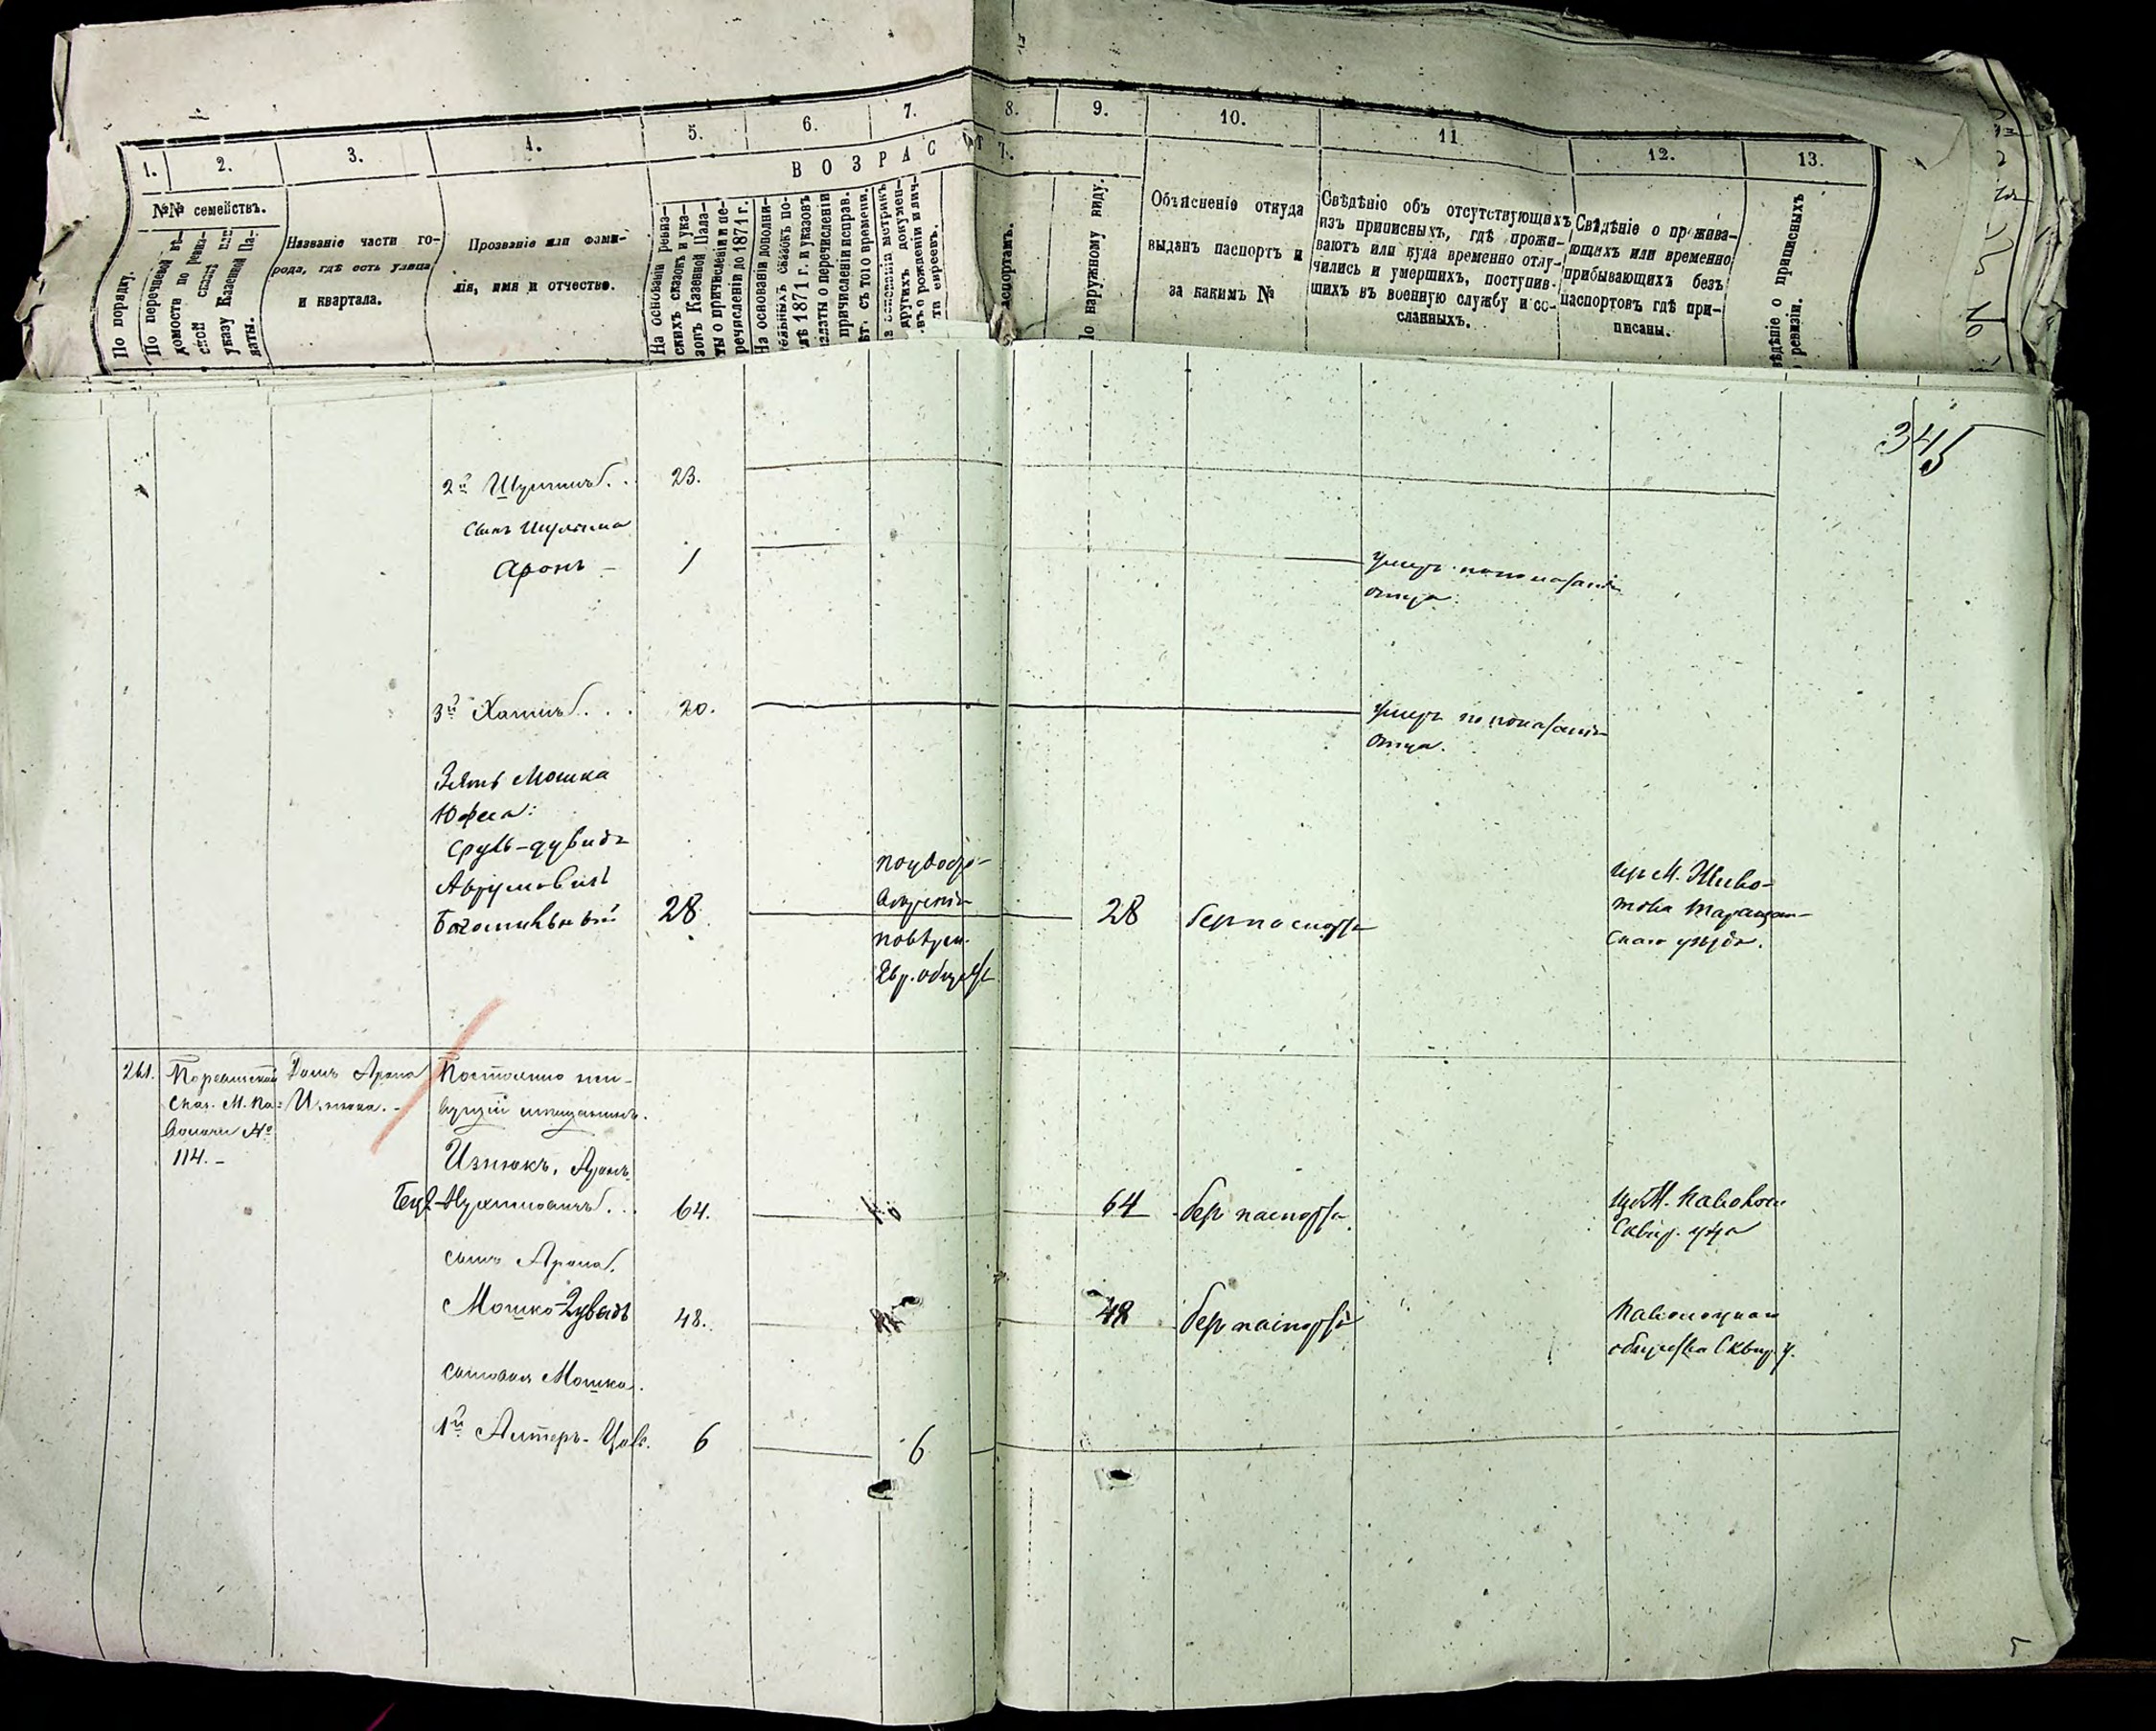 1.
2.
3.
4.
5.
6.
7.
8.
9.
10.
11
12.
13.
ВОЗРАСТ
№№ семействъ.
По порядку.
По перечневой вѣ-
домости по ревиз-
ской сказкѣ или
указу Казенной Па-
латы.
Названіе части го-
рода, гдѣ есть улица
и квартала.
Прозваніе или фами-
лія, имя и отчество.
На основаніи ревиз-
скихъ сказокъ и ука-
зовъ Казенной Пала-
ты о причисленіи и пе-
речисленіи до 1871 г.
На основаніи дополни-
тельныхъ сказокъ по-
слѣ 1871 г. и указовъ
палаты о перечисленіи
причисленіи исправ.
съ того времени.
На основаніи метрикъ
другихъ докумен-
въ о рожденіи и лич-
ти евреевъ.
аспортамъ.
По наружному виду.
Объясненіе откуда
выданъ паспортъ и
за какимъ №
Свѣдѣніе объ отсутствующихъ
изъ приписныхъ, гдѣ прожи-
ваютъ или куда временно отлу-
чились и умершихъ, поступив-
шихъ въ военную службу и со-
сланныхъ.
Свѣдѣніе о прожива-
ющихъ или временно
прибывающихъ безъ
паспортовъ гдѣ при-
писаны.
вѣдѣніе о приписныхъ
ревизіи.
№
345
2й Шулимъ.. 23.
сынъ Шулима
Аронъ - 1
умеръ по показанію
отца.
3й Хаимъ... 20.
умеръ по показанію
отца.
Зять Мошка
Юфеа:
Сруль-Дувидъ
Аврумовичъ
28 28 безъ паспорта
по удосто-
вѣренію
повѣрен.
Евр. общества
из М. Живо-
това Таращан-
скаго уѣзда.
261.
сказ. М. Па-
волочи №
114.-
Домъ Арона
Изнюка.-
Постоянно жи-
вущій мѣщанинъ.
Изнюкъ, Аронъ
64. 64 безъ паспорта
изъ М. Паволочи
Сквир. у-да
сынъ Арона.
Мошко-Дувидъ 48. 48 безъ паспорта
Паволоцкаго
общества Сквир. у.
сыновья Мошка.
1й Алтеръ- 6 6